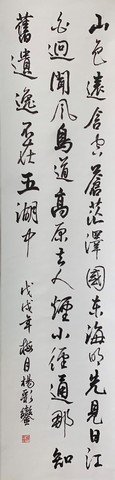 山色遠含空蒼茫澤國東海明先見日江
白迴聞風鳥道高原去人煙小徑通那知
舊遺逸不在五湖中
戊戌年梅月楊彩鑾